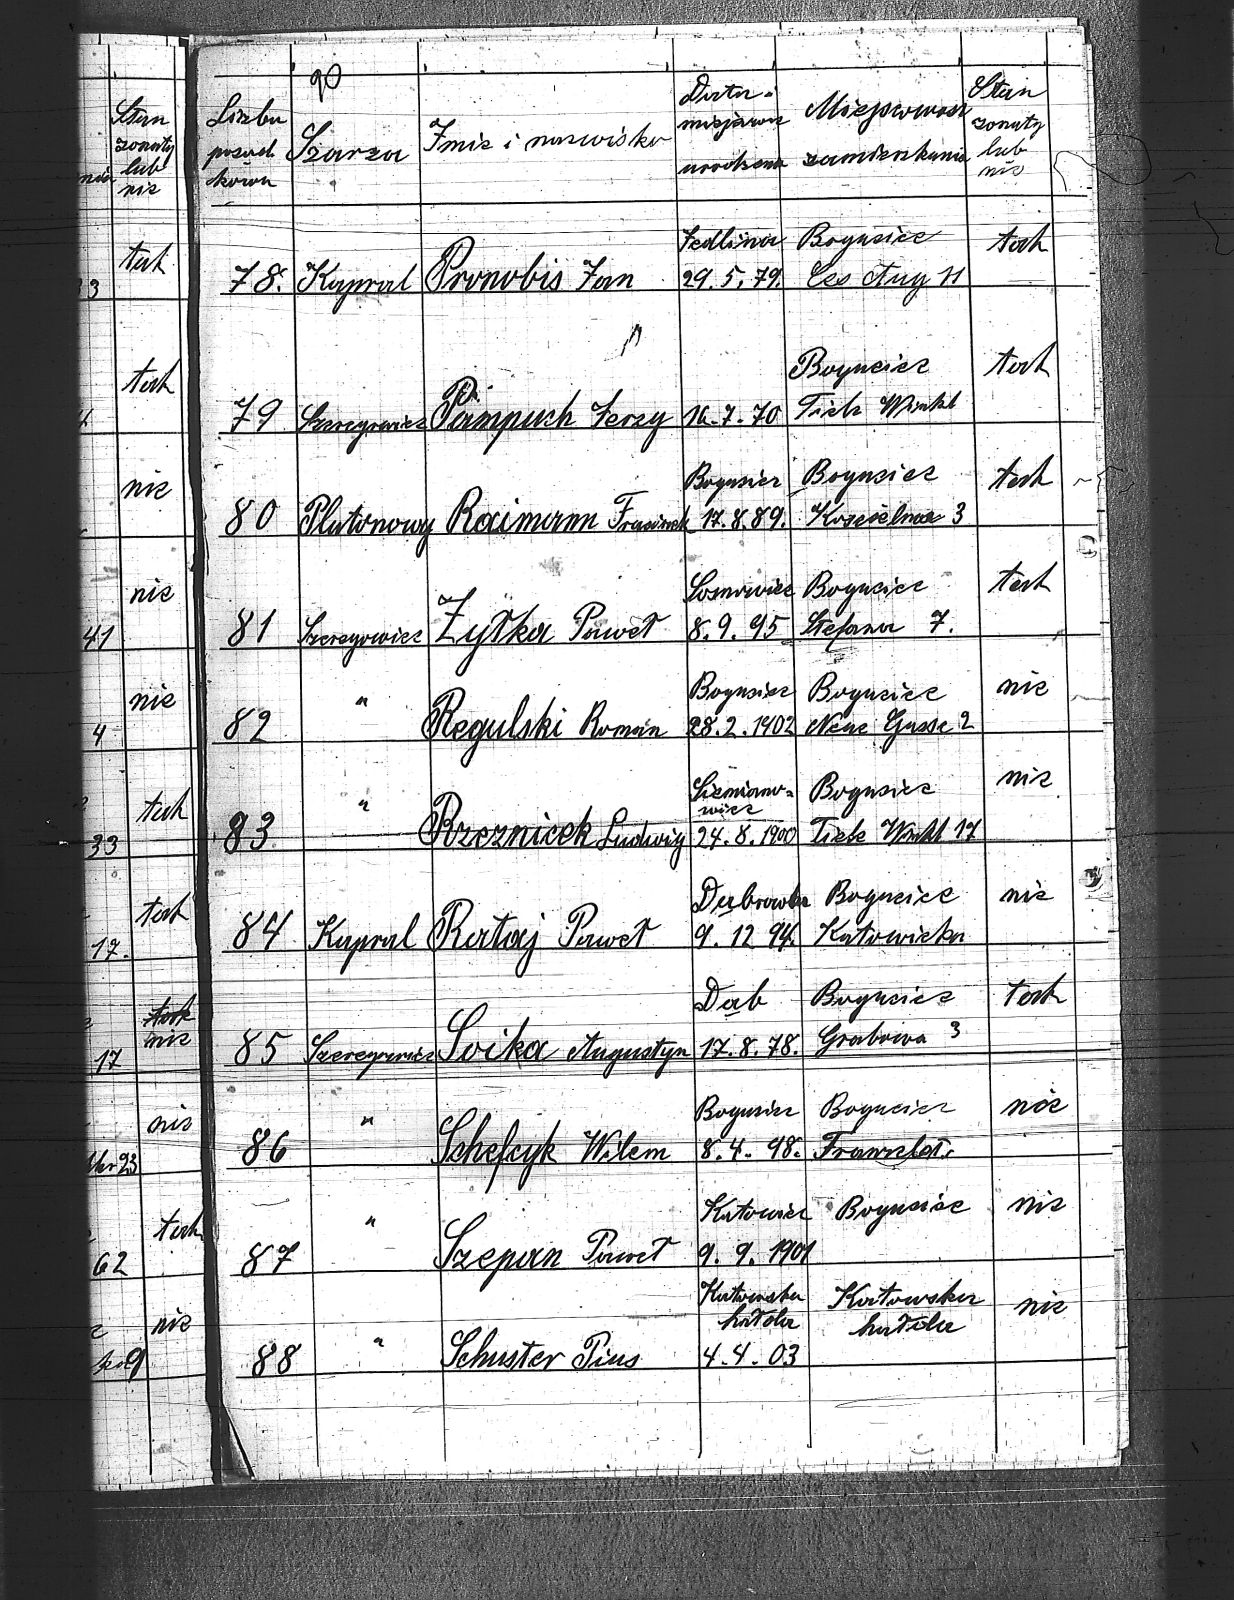 90
Stan
zonaty
lub
nie
Liczba
porząd
kowa
Szarza
Imie i nazwisko
Data
miejscowość
zamieszkania
Stan
zonaty
lub
nie
Jedlina Bogucice tak
78. Kapral Pronobis Jan 29.5.79. Ces Aug 11
Bogucice tak
79 Szeregowiec Pampuch Jerzy 16.7.70 Tiele Winkl
Bogucice Bogucice tak
80 Plutonowy Raimann 17.8.89. Koscielna 3
Sosnowiec Bogucice tak
81 Szeregowiec Zytka Paweł 8.9.95 Stefana 7.
Bogucice Bogucice nie
82 " Regulski Roman 28.2.1902 Neue Gasse 2
Siemiano-
wice Bogucice nie
83 " Rzeznicek Ludwig 24.8.1900 Tiele Winkl 17
Dąbrowka Bogucice nie
84 Kapral Rataj Paweł 9.12 94. Katowicka
Dąb Bogucice tak
85 Szeregowiec Soika Augustyn 17.8.78. Grabowa 3
Bogucice Bogucice nie
86 " Schefcyk Wilem 8.4.98.
Katowice Bogucice nie
87 " Szepan Paweł 9.9.1901
Katowska Katowska nie
hałda hałda
88 " Schuster Pius 4.4.03
tak
33
tak
nie
nie
41
nie
4
tak
33
tak
17.
tak
nie
17
nie
23
tak
62
nie
9